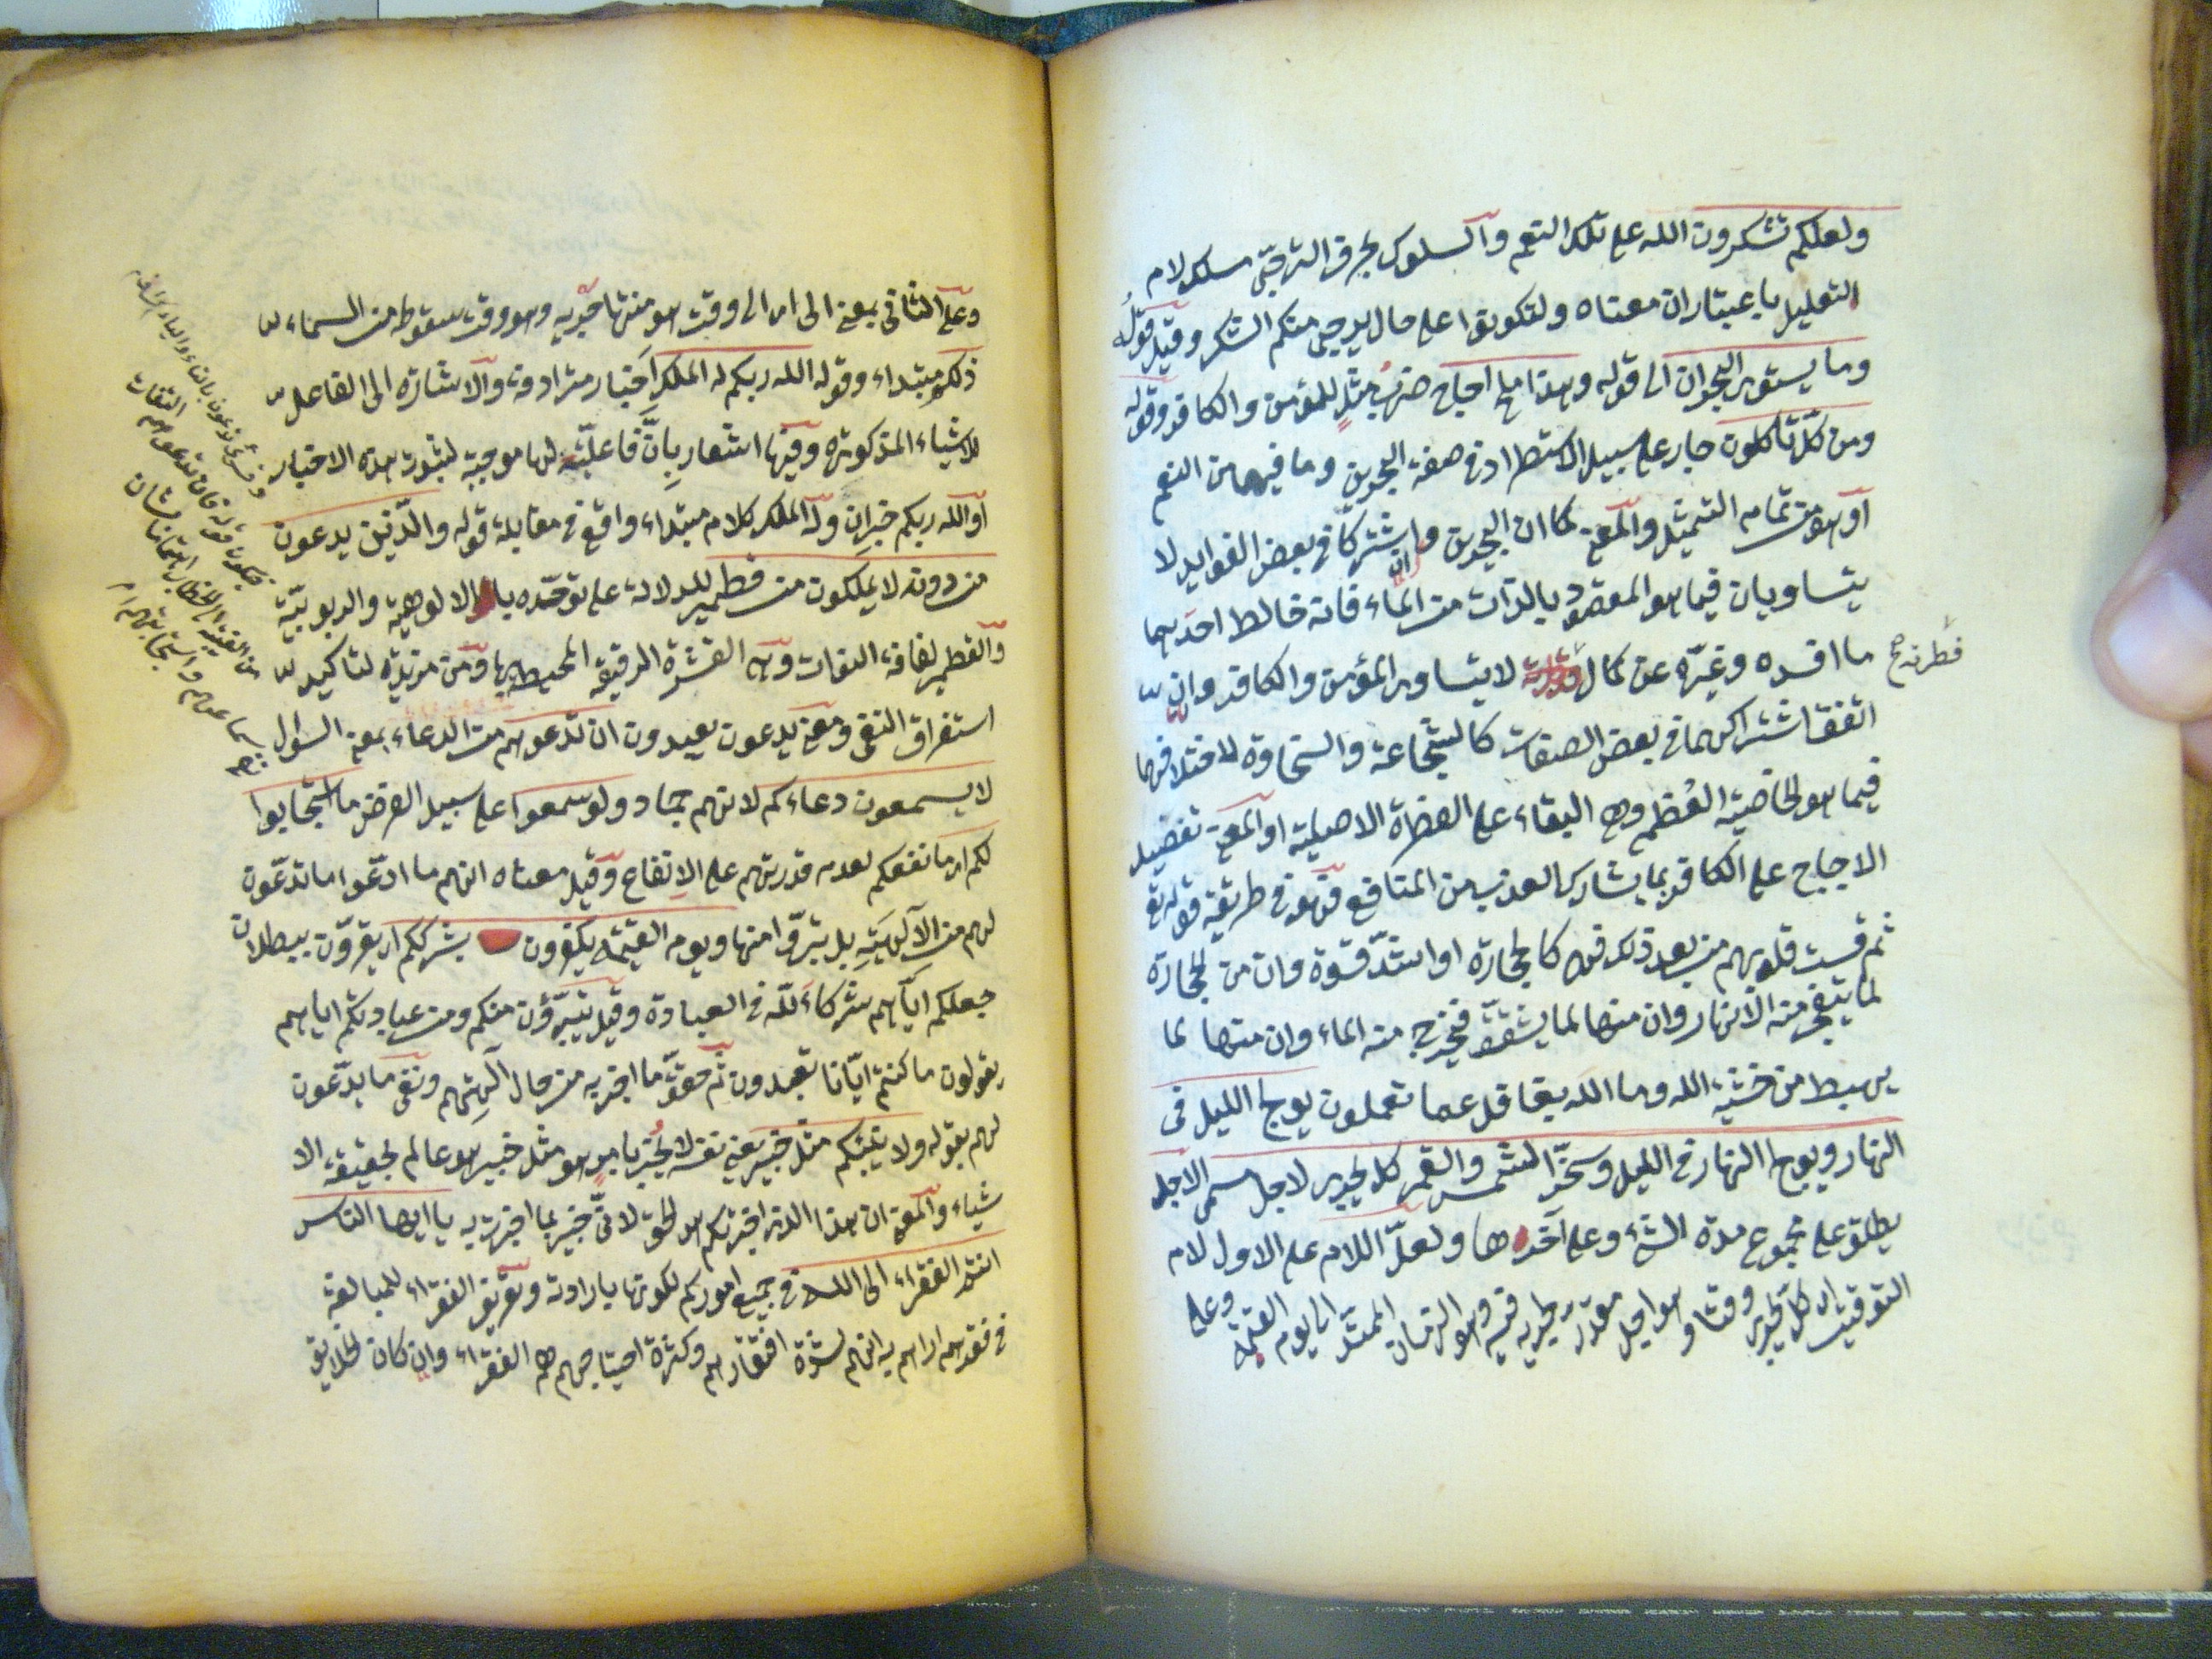 ولعلكم تشكرون الله على تلك النعم والسلوك بحرف الترجّي مسلك لام
التعليل باعتبار ان معناه ولتكونوا على حال يرجى منكم الشكر وقيل قوله
وما يستوى البحران الى قوله وهذا ملح اجاج ضرب مثل للمؤمن والكافر وقوله
ومن كلّ تأكلون جار على سبيل الاستطراد في صفة البحرين وما فيهما من النعم
او هو من تمام التمثيل والمعنى كما ان البحرين وان اشتركا في بعض الفوايد لا
يتساويان فيما هو المقصود بالذات من الماء فانه خالط احدهما
ما افسده وغيّره عن كمال لا يتساوى المؤمن والكافر وان
فطرته صح
اتفقا اشتراكهما في بعض الصفات كالشجاعة والسخاوة لاختلافهما
فيما هو الخاصية العُظمى وهي البقاء على الفطرة الاصلية او المعنى تفضيل
الاجاج على الكافر بما يشارك العذب من المنافع فهو في طريقة قوله تع
ثم قست قلوبهم من بعد ذلك فهي كالحجارة او اشدّ قسوة وان من الحجارة
لما يتفجر منه الانهار وان منها لما يشقّق فيخرج منه الماء وان منها لما
يهبط من خشية الله وما الله بغافل عما تعملون يولج الليل في
النهار ويولج النهار في الليل وسخّر الشمس والقمر كل يجرى لاجل مسمى الاجل
يطلق على مجموع مدة الشئ وعلى آخرها ولعلّ اللام على الاول لام
التوقيت اى كلّ يجرى وقتا هو اجل مقدر يجرى فيه وهو الزمان الممتدّ الى يوم القيمة وعلى
وعلى الثاني بمعنى الى اى الى وقت هو منتها جريه وهو وقت سقوط من السماء
ذلكم مبتداء وقوله الله ربكم له الملك اخبار مترادفة والاشارة الى الفاعل
للاشياء المذكورة وفيها اشعار بانَّ فاعليّته لها موجبة لثبوت هذه الاخبار
او الله ربكم خبران وله الملك كلام مبتداء واقع في مقابلة قوله والّذين يدعون
من دونه لا يملكون من قطمير للدلالة على توحّده بالالوهية والربوبيّة
والقطمير لفافة النوات وهي القشرة الرقيقة المحيطة بها ومن مزيدة لتاكيد
استغراق النفي ومعنى يدعون يعبدون ان تدعوهم من الدعاء بمعنى السؤال
لا يسمعون دعاءكم لانهم جماد ولو سمعوا على سبيل الفرض ما استجابوا
لكم اى ما نفعكم لعدم قدرتهم على الانفاع وقيل معناه انهم ما ادّعوا ما تدّعون
لهم من الآلهيّة بل تبرّؤا منها ويوم القيمة يكفرون بشرككم اى يقرّون ببطلان
جعلكم ايّاهم شركاء للّه في العبادة وقيل يتبرّؤن منكم ومن عبادتكم اياهم
يقولون ما كنتم ايّانا تعبدون ثم حقّق ما اخبر به من حال آلهتهم ونفى ما يدّعون
لهم بقوله ولا ينبئك مثل خبير يعني نفسه لا يُخبر بامر هو مثل خبير هو عالم بحقيقة الا
شياء والمعنى ان هذا الذى اخبرتكم هو الحق لانّى خبير بما اخبرت به يا ايها الناس
انتم الفقراء الى الله في جميع اموركم لكونها بارادته وتعريف الفقراء للمبالغة
في فقدهم اراهم به انهم لشدّة افتقارهم وكثرة احتياجهم هم الفقراء وان كان الخلايق